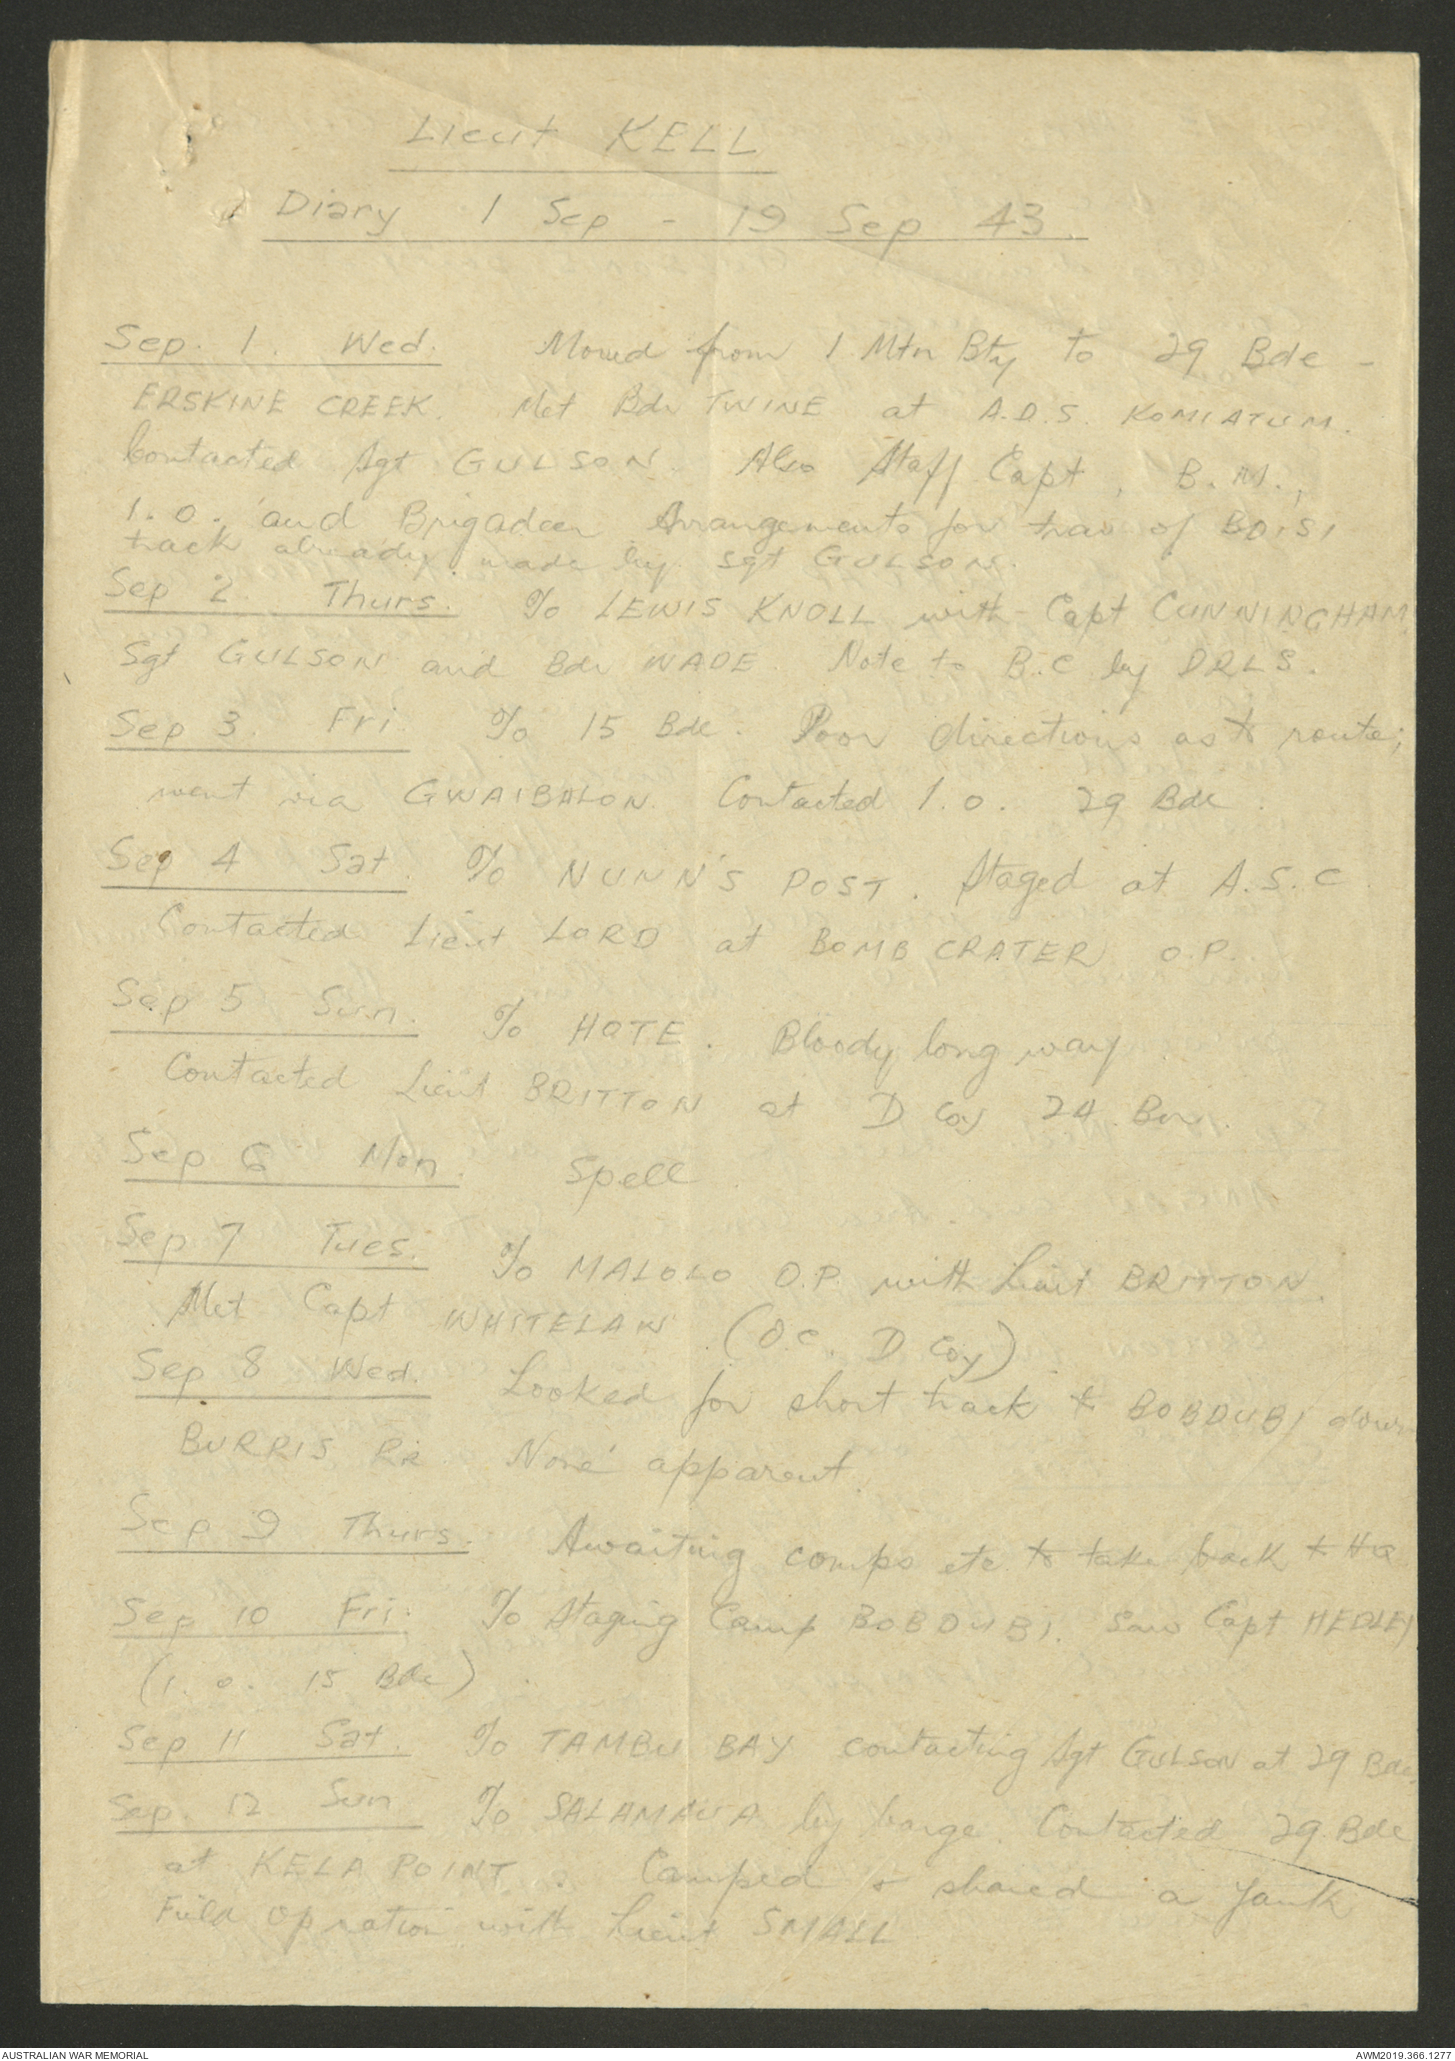 Lieut KELL
Diary 1 Sep - 19 Sep 43.
Sep. 1. Wed. Moved from 1 Mtn Bty to 29 Bde -
ERSKINE CREEK. Met Bdr TWINE at A.D.S. KOMIATUM.
Contacted Sgt GULSON. Also Staff Capt, B.M.,
I.O., and Brigadeer Arrangements for trav of BOISI
track already made by Sgt GULSON.
Sep 2. Thurs. To LEWIS KNOLL with Capt CUNNINGHAM
Sgt GULSON and Bdr WADE. Note to B.C by DRLS.
Sep 3. Fri. To 15 Bde. Poor directions as to route;
went via GWAIBALON. Contacted I.O. 29 Bde.
Sep 4 Sat. To NUNN'S POST. Staged at A.S.C
Contacted Lieut LORD at BOMB CRATER O.P.
Sep 5 Sun. To HOTE. Bloody long way.
Contacted Lieut BRITTON at D Coy 24 Bn.
Sep 6 Mon. Spell
Sep 7 Tues. To MALOLO O.P. with Lieut BRITTON.
Met Capt WHITELAW (O.C. D Coy)
Sep 8 Wed. Looked for short track to BOBDUBI down
BURRIS RR. None apparent.
Sep 9 Thurs. Awaiting comps etc to take back to HQ
Sep 10 Fri. To Staging Camp BOBDUBI. Saw Capt HEDLEY
(I.O. 15 Bde).
Sep 11 Sat. To TAMBU BAY contacting Sgt GULSON at 29 Bde.
Sep. 12 Sun To SALAMAUA by barge. Contacted 29 Bde
at KELA POINT. Camped & shared a Yank
Field Operation with Lieut SMALL
AUSTRALIAN WAR MEMORIAL
AWM2019.366.1277